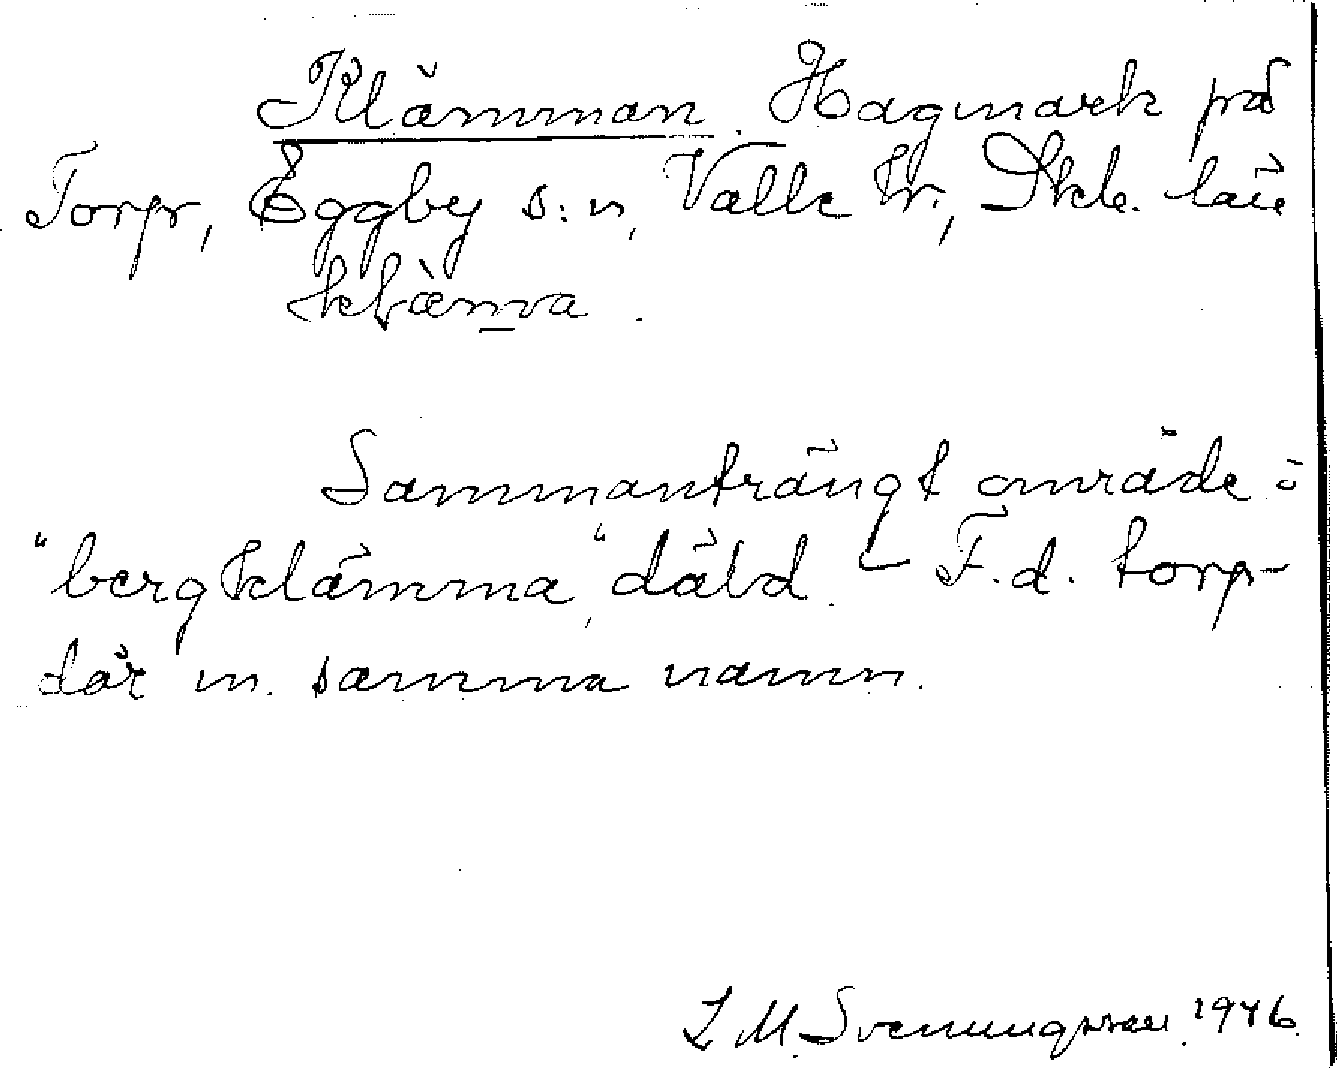 Klämman. Hagmark på
Torp, Eggby s:n, Valle hr., Skb. län
klæm̲a.
Sammanträngt område i
"bergklämma", däld. – F.d. torp
där m. samma namn.
L M. Svenungsson. 1946.